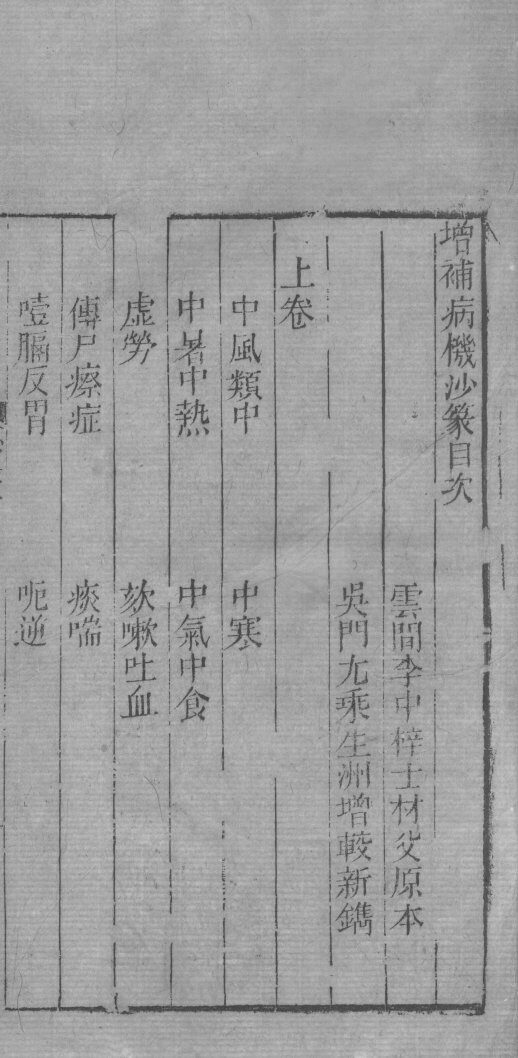 增補病機沙篆目次
雲間李中梓士材父原本
吳門尤乘生洲增較新鐫
上卷
中風類中 中寒
中暑中熱 中氣中食
虛勞 欬嗽吐血
傳尸瘵症 痰喘
噎膈反胃 呃逆